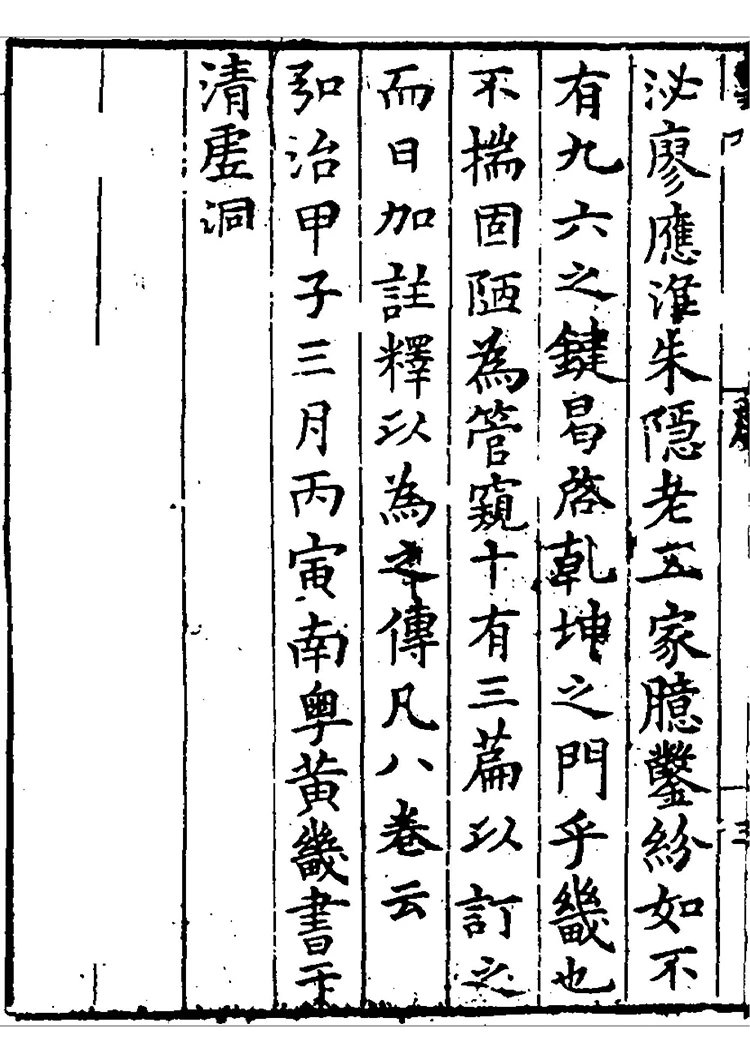 泌廖應淮朱隠老五家臆鑿紛如不
有九六之鍵曷啓乾坤之門乎畿也
不揣固陋為管窺十有三篇以訂之
而日加註釋以為之傳凡八卷云
弘治甲子三月丙寅南粵黃畿書于
清虛洞